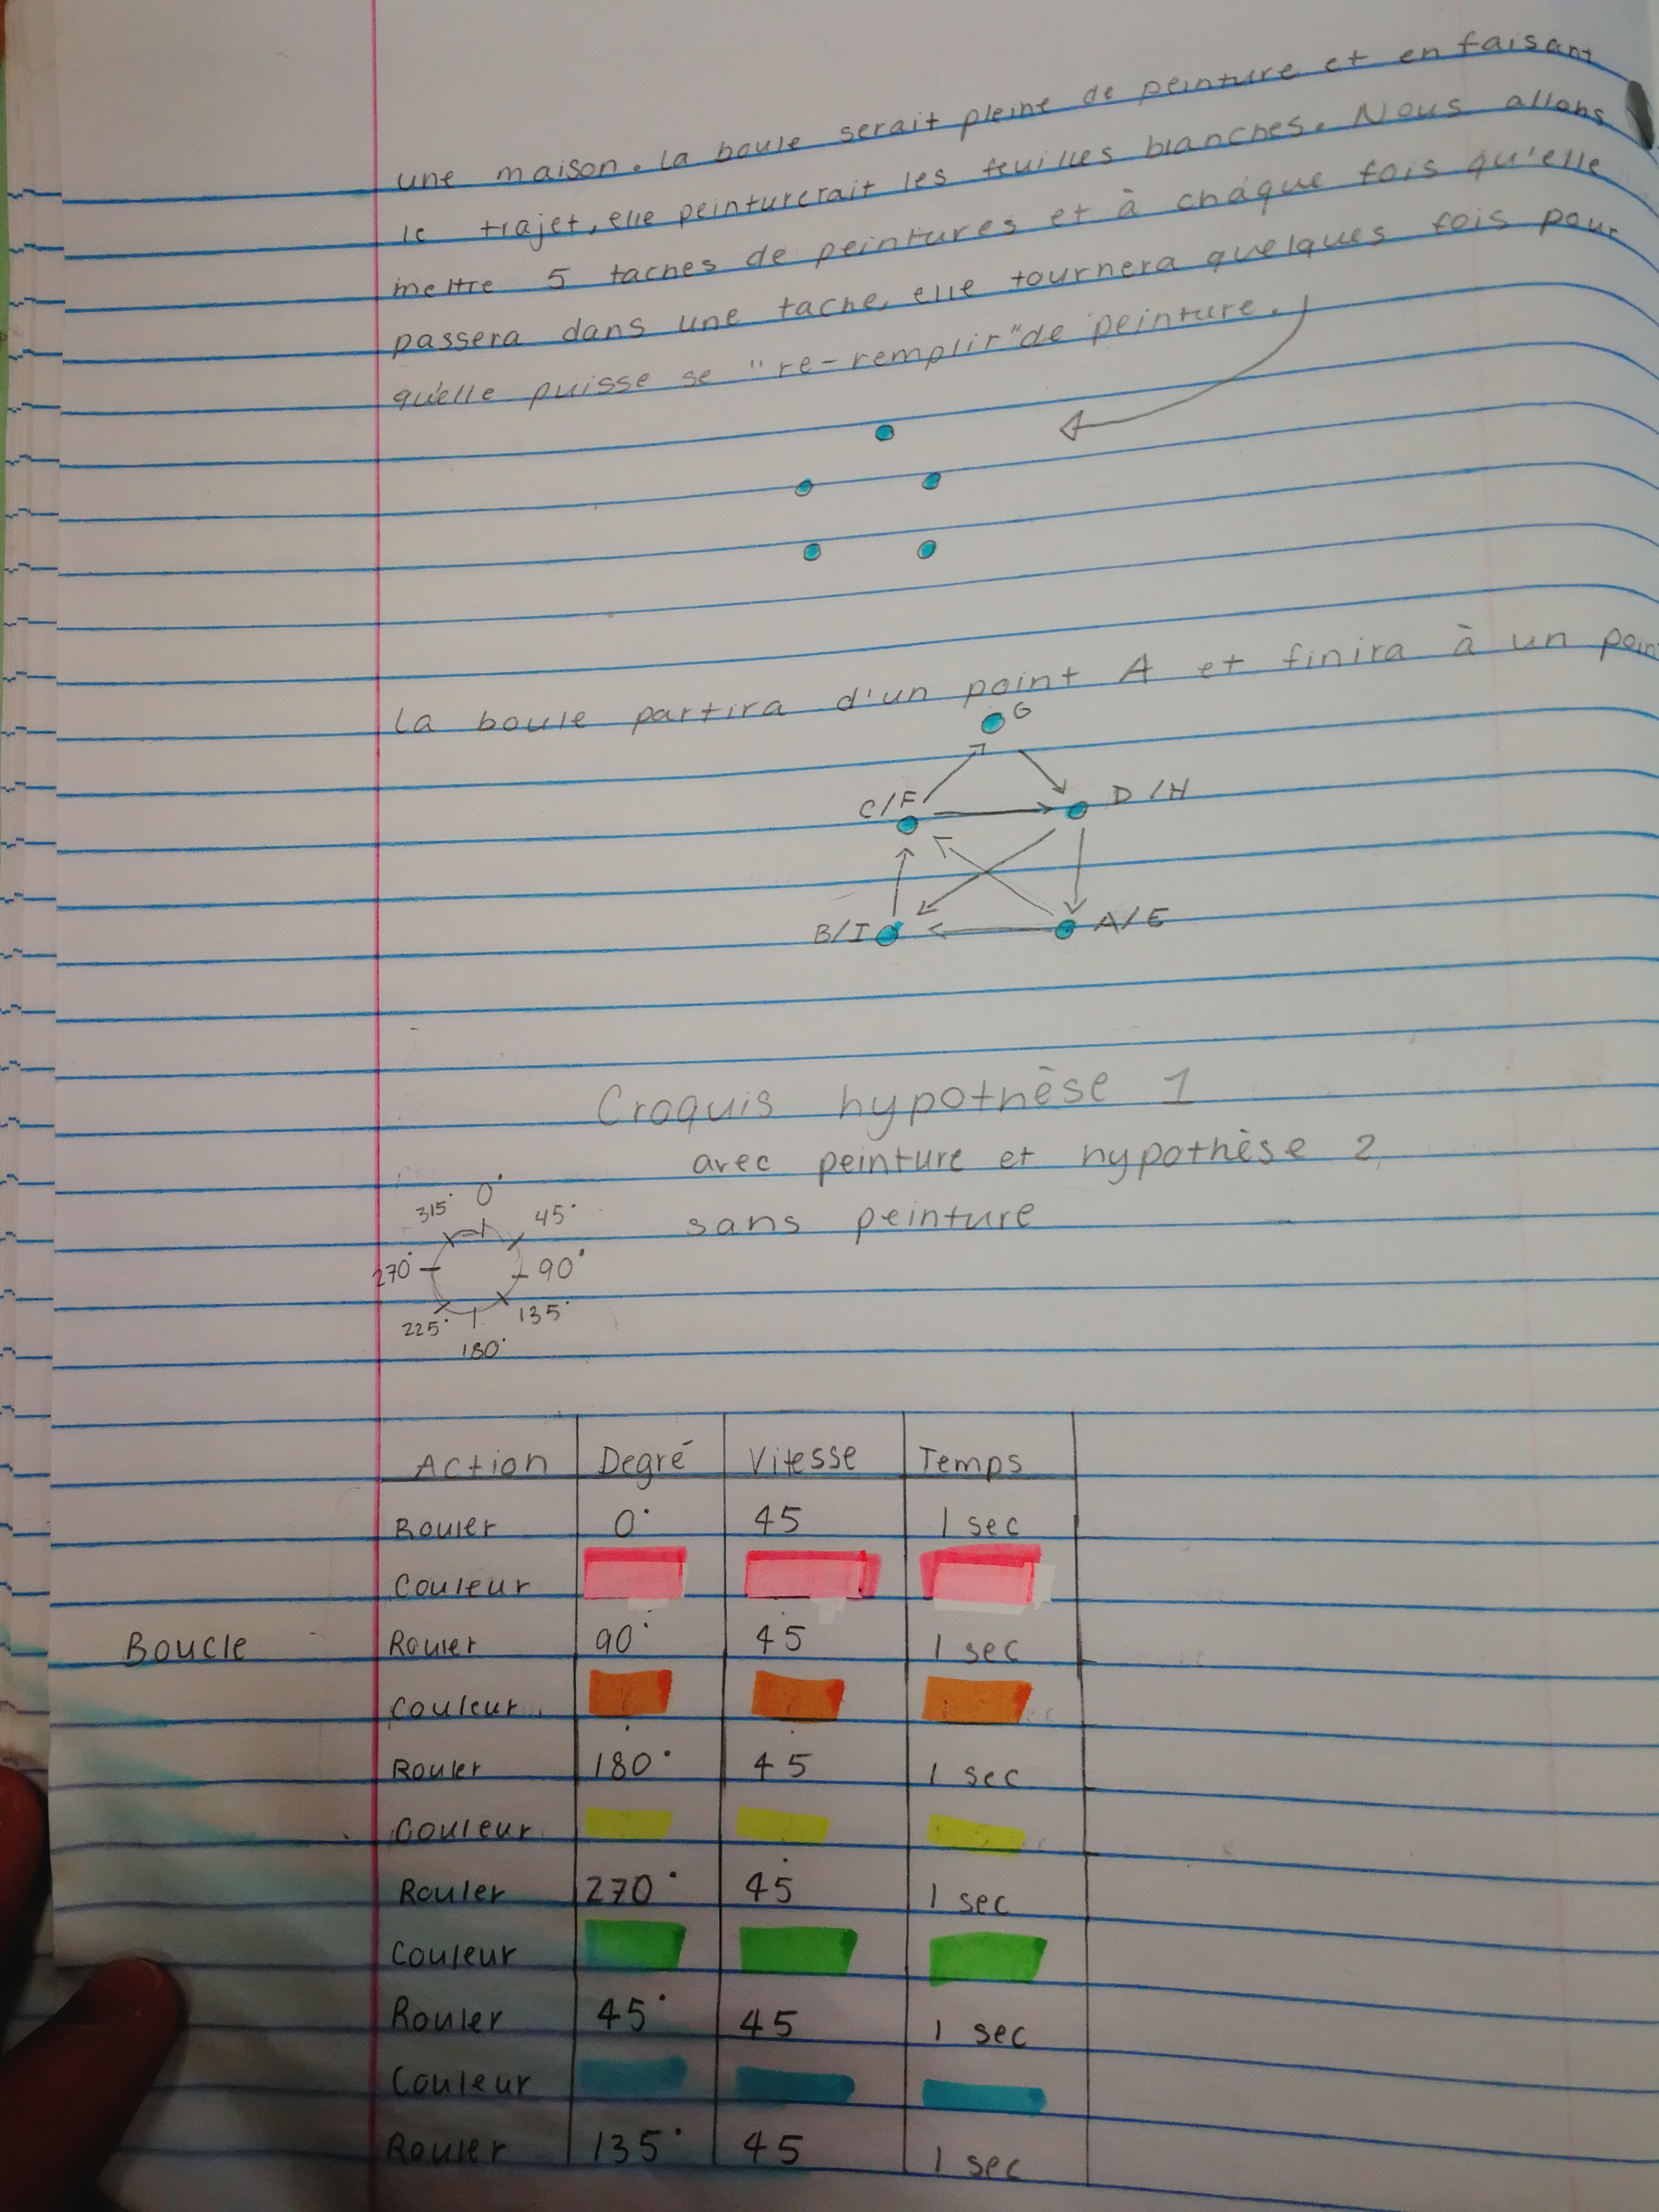 une maison. La boule serait pleine de peinture et en faisant
le trajet, elle peinturerait les feuilles blanches. Nous allons
mettre 5 taches de peintures et à chaque fois qu'elle
passera dans une tache, elle tournera quelques fois pour
qu'elle puisse se "re-remplir" de peinture.
La boule partira d'un point A et finira à un
G
C/F D/H
B/I A/E
Croquis hypothèse 1
avec peinture et hypothèse 2
sans peinture
315° 0° 45°
270° 90°
225° 180° 135°
Action Degré Vitesse Temps
Rouler 0° 45 1 sec
Couleur
Boucle Rouler 90° 45 1 sec
Couleur
Rouler 180° 45 1 sec
Couleur
Rouler 270° 45 1 sec
Couleur
Rouler 45° 45 1 sec
Couleur
Rouler 135° 45 1 sec